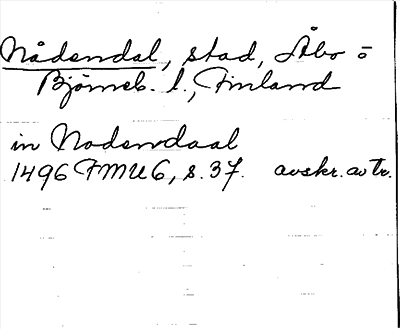 Nådendal, stad, Åbo o
Björneb. l., Finland
in Nodendaal
1496 FMU 6, s. 37. avskr. av tr.